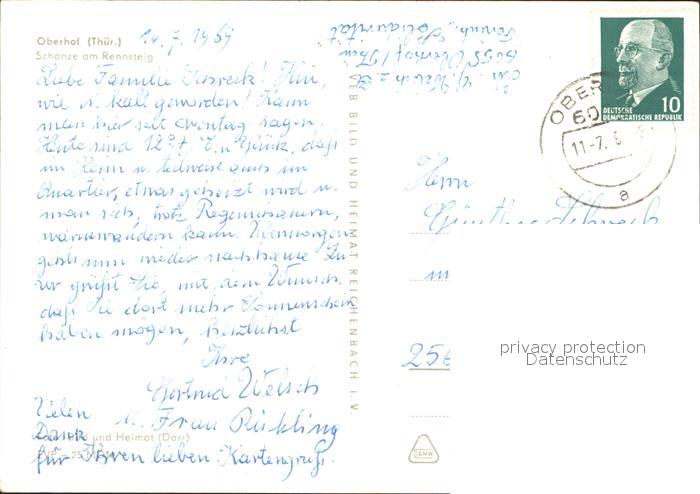 Oberhof (Thür.)
Schanze am Rennsteig
10.7.1969
Liebe Familie Schreck! Hin,
wie kalt geworden! Kann
man hier seit Montag sagen.
Heute sind 12° + Z. Glück, daß
im Heim u. teilweise auch im
Quartier, etwas geheizt wird u.
man sich, trotz Regenschauern,
wärmewandern kann. Übermorgen
gehts nun wieder nachhause. Zu-
vor grüßt Sie, mit dem Wunsch
daß Sie dort mehr Sonnenschein
haben mögen, herzlichst
Ihre
Gertrud Welsch
u. Frau Rückling
Vielen
Dank
für Ihren lieben Kartengruß.
Bild und Heimat (Darr)
VEB BILD UND HEIMAT REICHENBACH I. V.
6055 Oberhof / Thür.
"Solidarität"
DEUTSCHE
DEMOKRATISCHE REPUBLIK
10
OBER
60
11.-7.
a
Herrn
Günther Schreck
256
privacy protection
Datenschutz